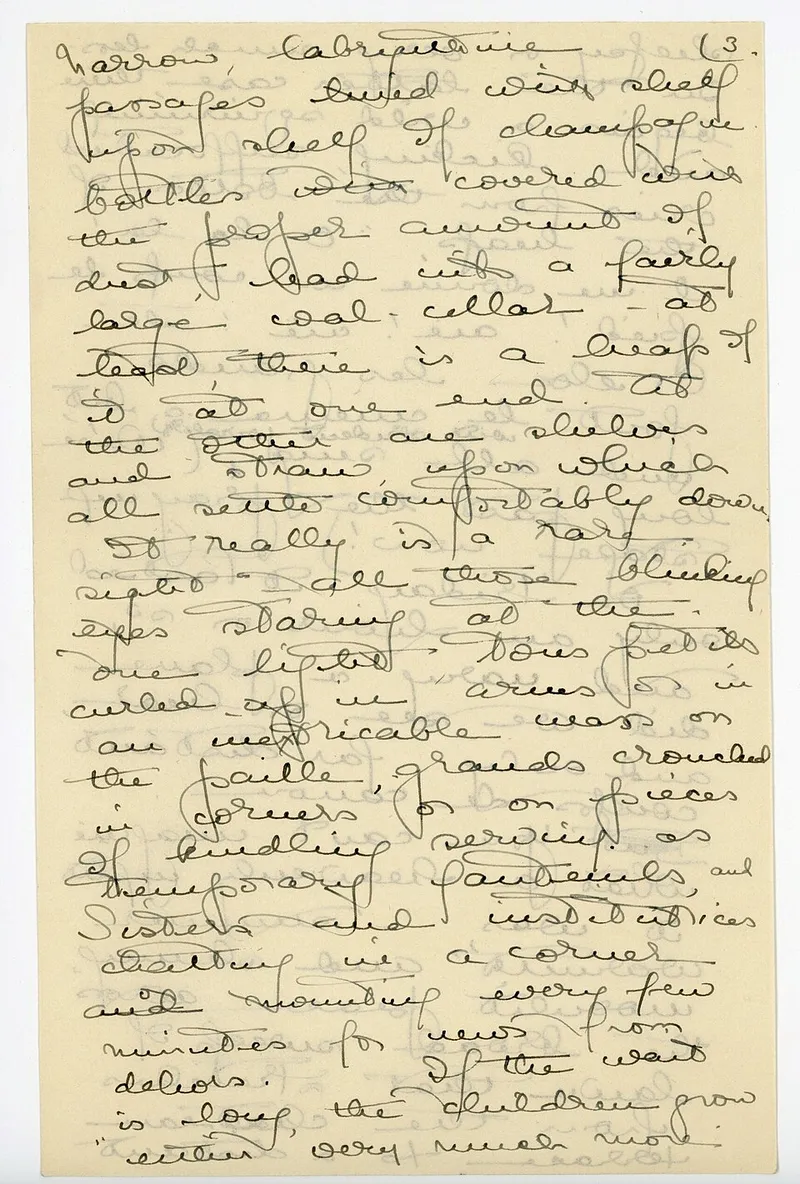 narrow, labryntine (3.
passages lined with shelf
upon shelf of champagne
bottles covered with
the proper amount of
dust, lead into a fairly
large coal-cellar - at
least there is a heap of
it at one end. At
the other are shelves
and straw, upon which
all settle comfortably down.
It really is a rare
sight - all those blinking
eyes staring at the
one light. Tous petits
curled up in arms or in
an inextricable mass on
the paille, grands crouched
in corners or on pieces
of kindling serving as
temporary fauteuils, and
Sisters and institutrices
chatting in a corner
and mounting every few
minutes for news from
dehors. If the wait
is long, the children grow
very much more